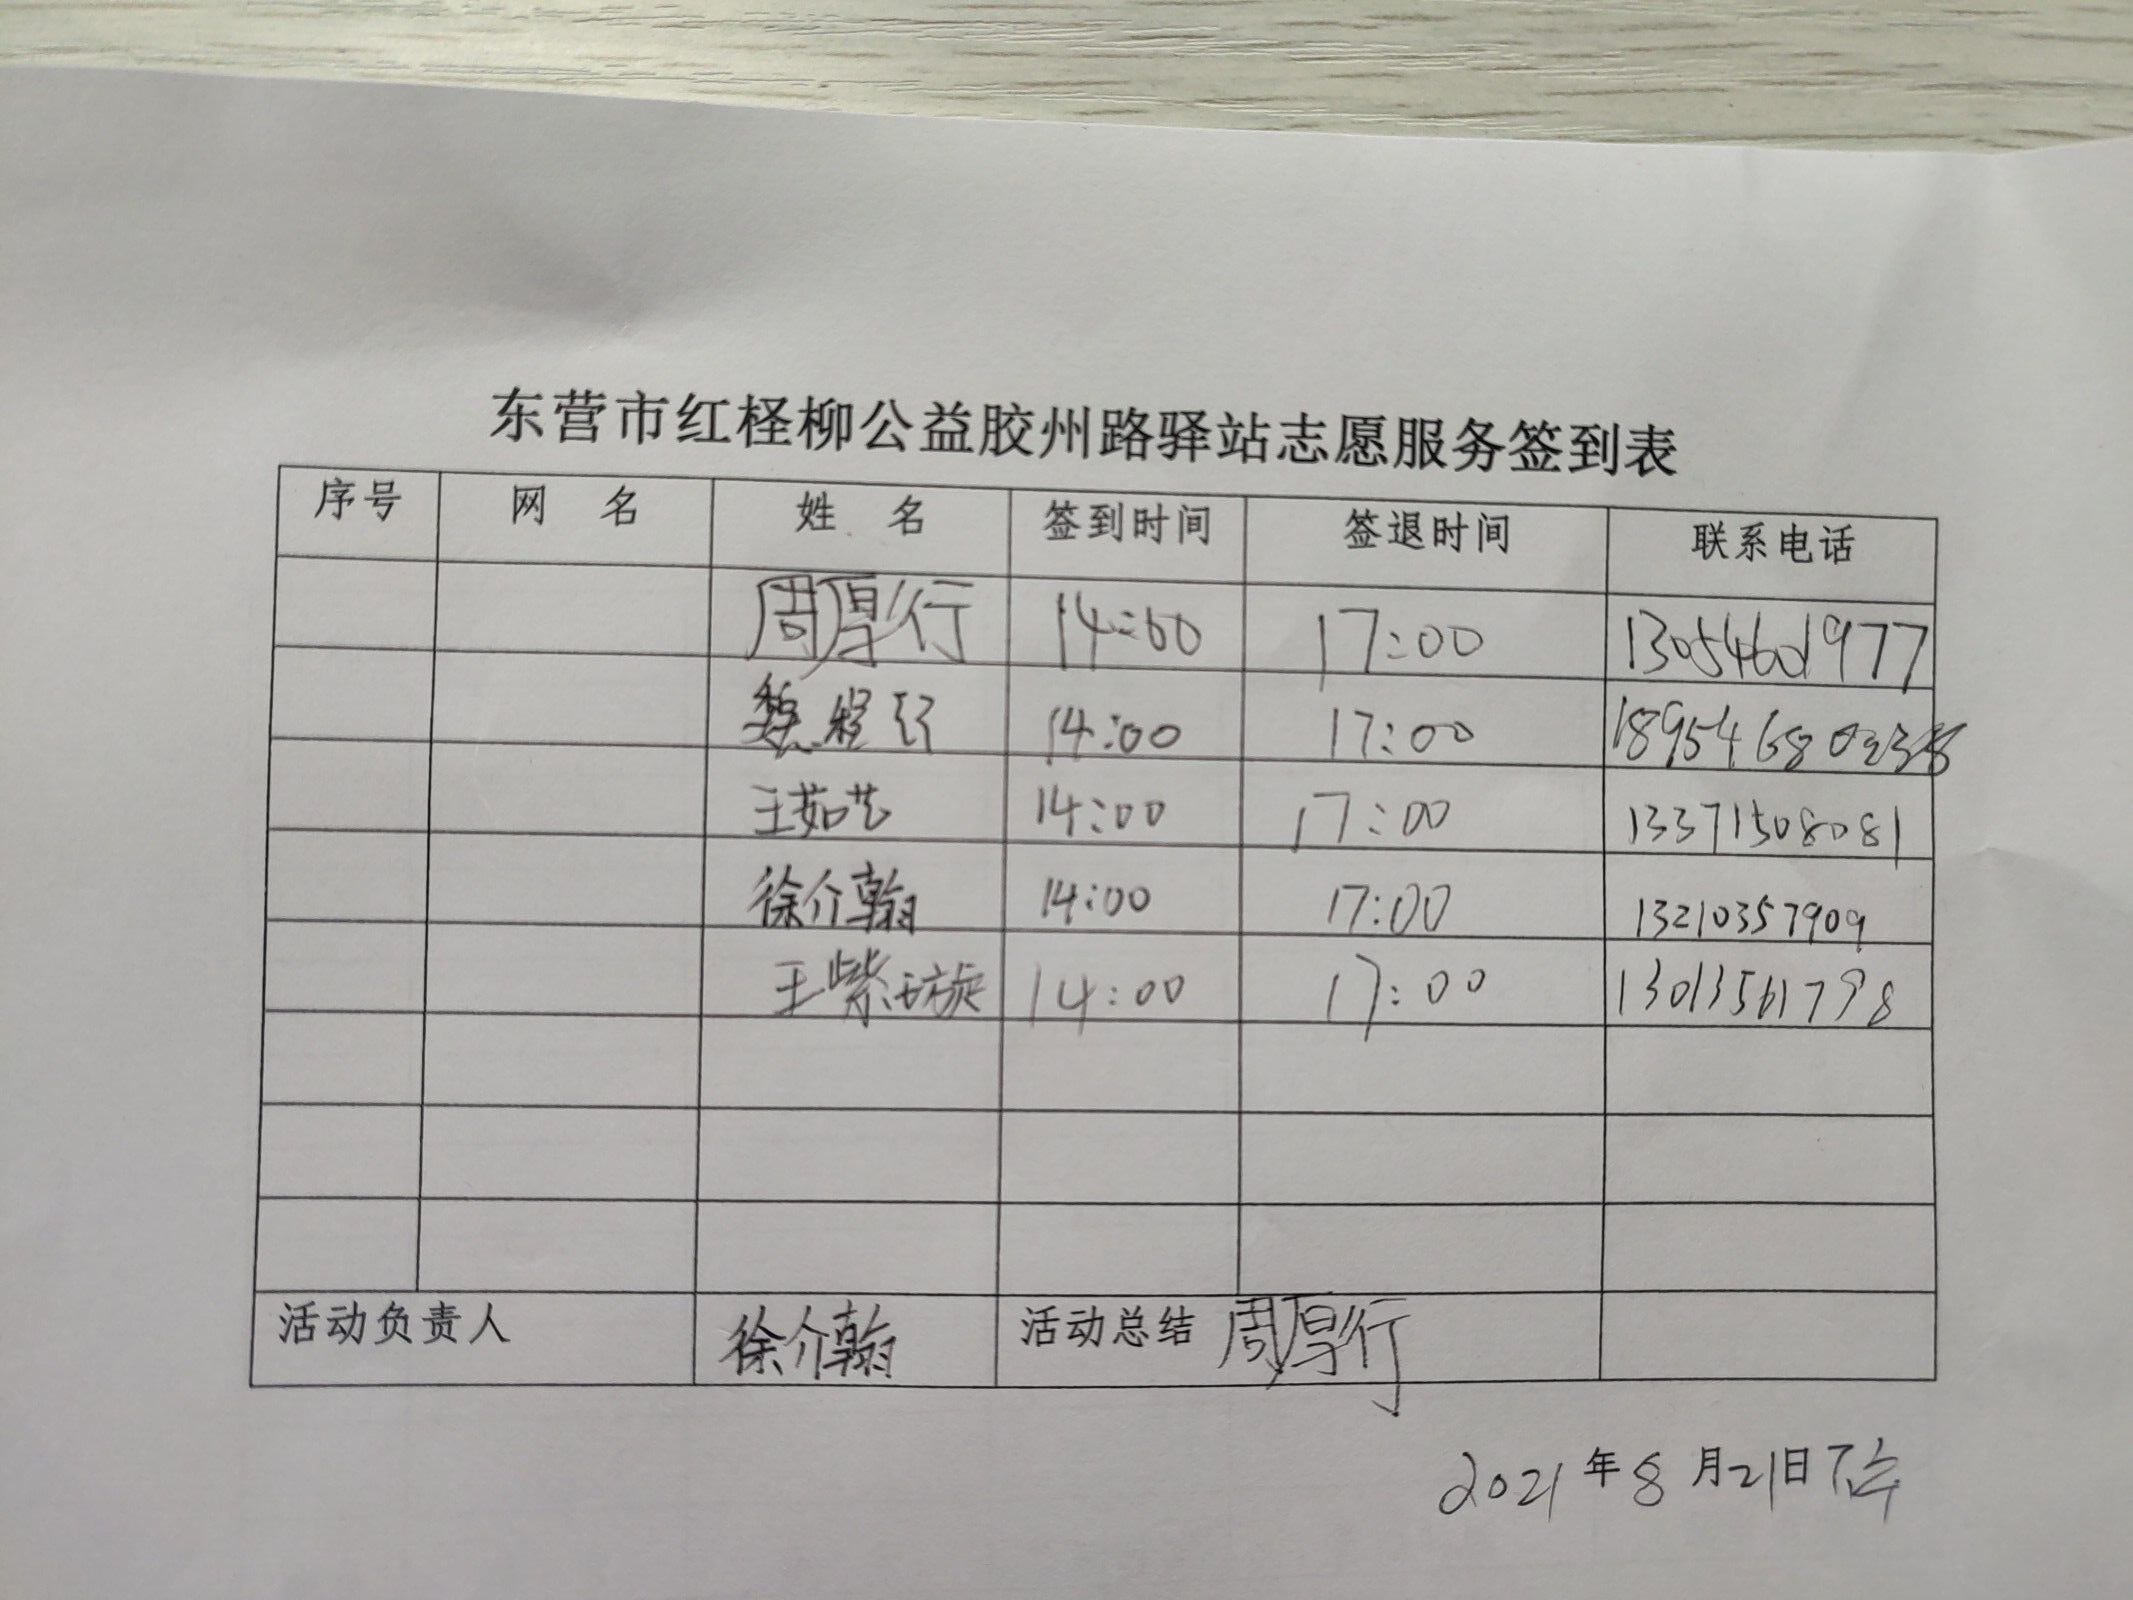 东营市红柽柳公益胶州路驿站志愿服务签到表
序号 网 名 姓 名 签到时间 签退时间 联系电话
周厚行 14:00 17:00 13054601977
魏 14:00 17:00
王茹艺 14:00 17:00 13371508081
徐介翰 14:00 17:00 13210357909
王紫璇 14:00 17:00 13013561798
活动负责人 徐介翰 活动总结 周厚行
2021年8月21日下午